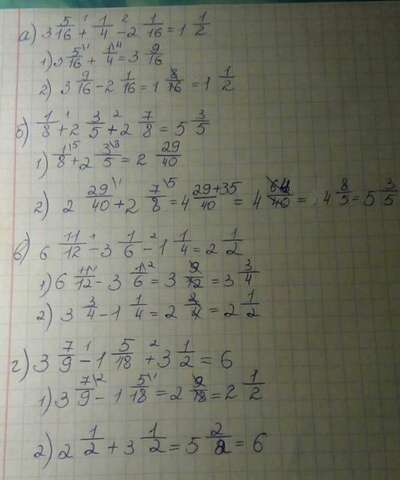 а) 3 5/16 + 1/4 - 2 1/16 = 1 1/2
1) 3 5/16 + 1/4 = 3 9/16
2) 3 9/16 - 2 1/16 = 1 8/16 = 1 1/2
б) 1/8 + 2 3/5 + 2 7/8 = 5 3/5
1) 1/8 + 2 3/5 = 2 29/40
2) 2 29/40 + 2 7/8 = 4 29+35/40 = 4 64/40 = 4 8/5 = 5 3/5
в) 6 11/12 - 3 1/6 - 1 1/4 = 2 1/2
1) 6 11/12 - 3 1/6 = 3 9/12 = 3 3/4
2) 3 3/4 - 1 1/4 = 2 2/4 = 2 1/2
г) 3 7/9 - 1 5/18 + 3 1/2 = 6
1) 3 7/9 - 1 5/18 = 2 9/18 = 2 1/2
2) 2 1/2 + 3 1/2 = 5 2/2 = 6